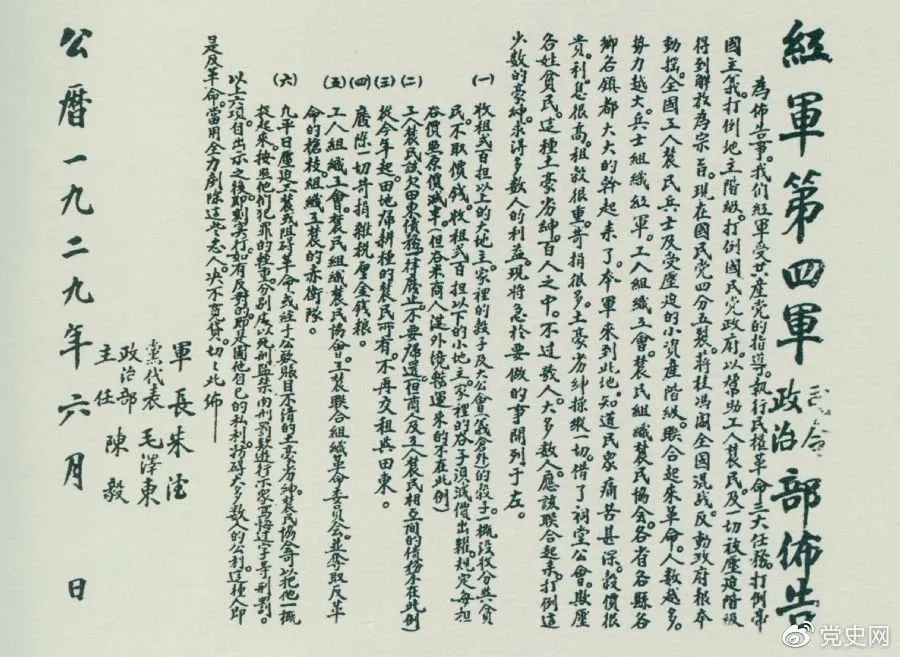 紅軍第四軍司令政治部佈告
為佈告事。我們紅軍受共產党的指導。執行民權革命三大任務。打倒帝
國主義。打倒地主階級。打倒國民党政府。以幫助工人農民及一切被壓迫階級
得到解放為宗旨。現在國民党四分五裂。蔣桂馮閻全國混战。反動政府根本
動搖。全國工人農民兵士及受壓迫的小資產階級。联合起來革命。人数越多。
势力越大。兵士組織紅軍。工人組織工會。農民組織農民協会。各省各縣各
鄉各鎮都大大的幹起来了。本軍来到此地。知道民眾痛苦甚深。穀價很
貴。利息很高。租穀很重。苛捐很多。土豪劣紳操縱一切。借了祠堂公會。欺壓
各姓貧民。這種土豪劣紳。百人之中。不过数人。大多数人。應該联合起来。打倒這
少数的豪紳。求得多数人的利益。現將急於要做的事開列于左。
(一)收租弍百担以上的大地主。家裡的穀子及大公會(義倉外)的穀子。一概沒收分與貧
民。不取價钱。收租弍百担以下的小地主。家裡的谷子須減價出糶。規定每担
谷價照原價減半。(但谷米商人從外境轉運来的不在此例)
(二)工人農民該欠田東債務。一律廢止。不要歸還。(但商人及工人農民相互間的債務不在此例)
(三)從今年起。田地歸耕種的農民所有。不再交租與田東。
(四)廢除一切苛捐雜稅厘金錢粮。
(五)工人組織工會。農民組織農民協會。工農联合組織革命委員会。並奪取反革
命的槍枝。組織工農的赤衛隊。
(六)凡平日壓迫工農或阻碍革命。或經手公款賬目不清的土豪劣紳。農民協會可以把他一概
捉起来。按照他們犯罪的輕重。分别处以死刑監禁肉刑罰款遊行示家写悔过字等刑罰。
以上六項自出示之後。即刻实行。如有反對的。即是圖他自己的私利。妨碍大多数人的公利。這種人即
是反革命。當用全力剷除這些恶人。决不寬貸。切切此佈
軍長朱德
黨代表毛澤東
政治部主任陳毅
公曆一九二九年六月 日
党史网